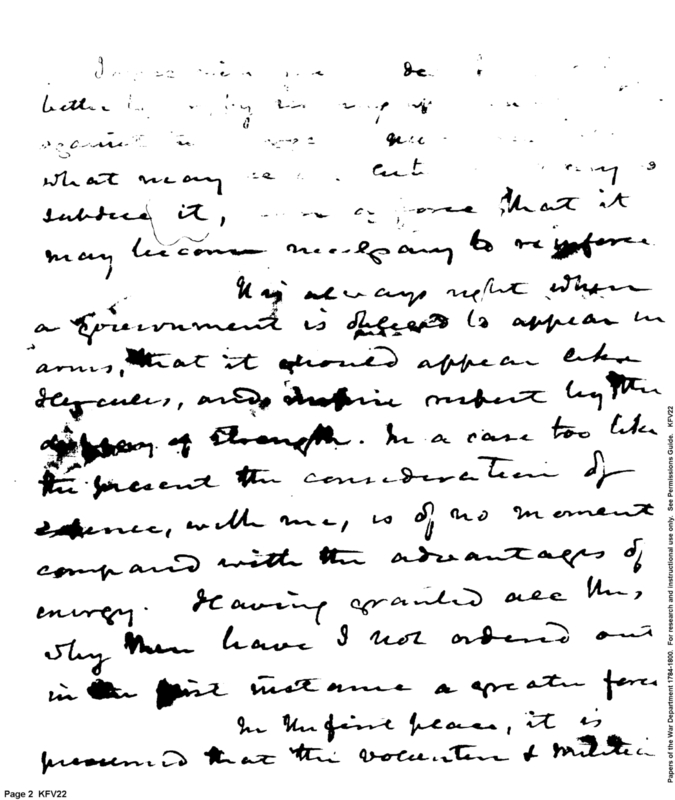 better
against
what may
subdue it, force that it
may become necessary to reinforce
It is always right when
a Government is obliged to appear in
arms, that it should appear like a
Hercules, and inspire respect by the
display of strength. In a case too like
the present the consideration of
expence, with me, is of no moment
compared with the advantages of
energy. Having granted all this,
why then have I not ordered out
in the first instance a greater force
In the first place, it is
presumed that the volunteer & militia
Page 2 KFV22
Papers of the War Department 1784-1800. For research and instructional use only. See Permissions Guide. KFV22